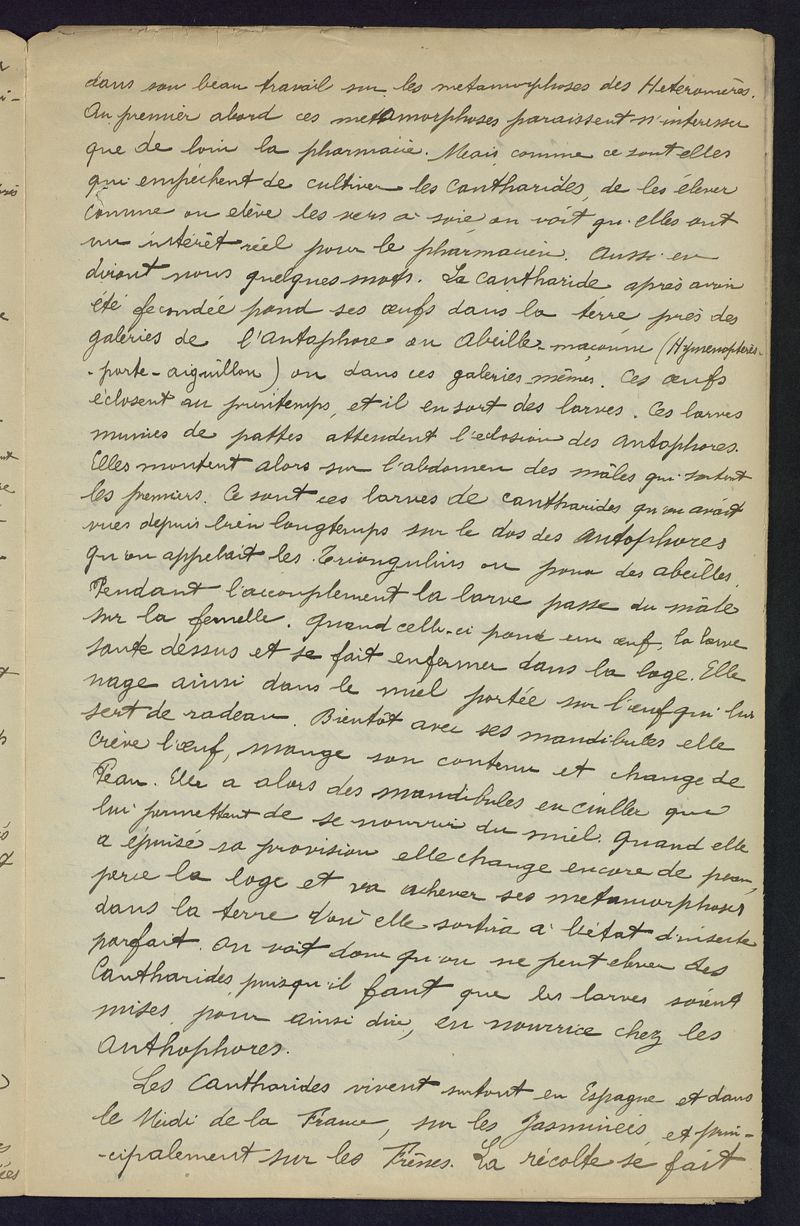 dans son beau travail sur les metamorphoses des Heteromères.
Au premier abord ces metamorphoses paraissent n'interesser
que de loin la pharmacie. Mais comme ce sont elles
qui empéchent de cultiver les cantharides, de les élever
comme on elève les vers à soie on voit qu'elles ont
un intérêt réel pour le pharmacien. Aussi en
diront nous quelques mots. La cantharide après avoir
été fecondée pond ses œufs dans la terre près des
galeries de l'antophore ou Abeille-maçonne (Hymenoptères-
-porte-aiguillon) ou dans ces galeries mêmes. Ces œufs
éclosent au printemps, et il en sort des larves. Ces larves
munies de pattes attendent l'eclosion des antophores.
Elles montent alors sur l'abdomen des mâles qui sortent
les premiers. Ce sont ces larves de cantharides qu'on avait
vues depuis bien longtemps sur le dos des antophores
qu'on appelait les Triongulins ou poux des abeilles.
Pendant l'accouplement la larve passe du mâle
sur la femelle. Quand celle-ci pond un œuf, la larve
saute dessus et se fait enfermer dans la loge. Elle
nage ainsi dans le miel portée sur l'œuf qui lui
sert de radeau. Bientôt avec ses mandibules elle
crève l'œuf, mange son contenu et change de
Peau. Elle a alors des mandibules en cuiller qui
lui permettent de se nourrir du miel. Quand elle
a épuisé sa provision elle change encore de peau,
perce la loge et va achever ses metamorphoses
dans la terre d'où elle sortira à l'état d'insecte
parfait. On voit donc qu'on ne peut elever des
Cantharides, puisqu'il faut que les larves soient
mises, pour ainsi dire, en nourrice chez les
anthophores.
Les cantharides vivent surtout en Espagne et dans
le Midi de la France, sur les Jasminées, et prin-
-cipalement sur les Frênes. La récolte se fait